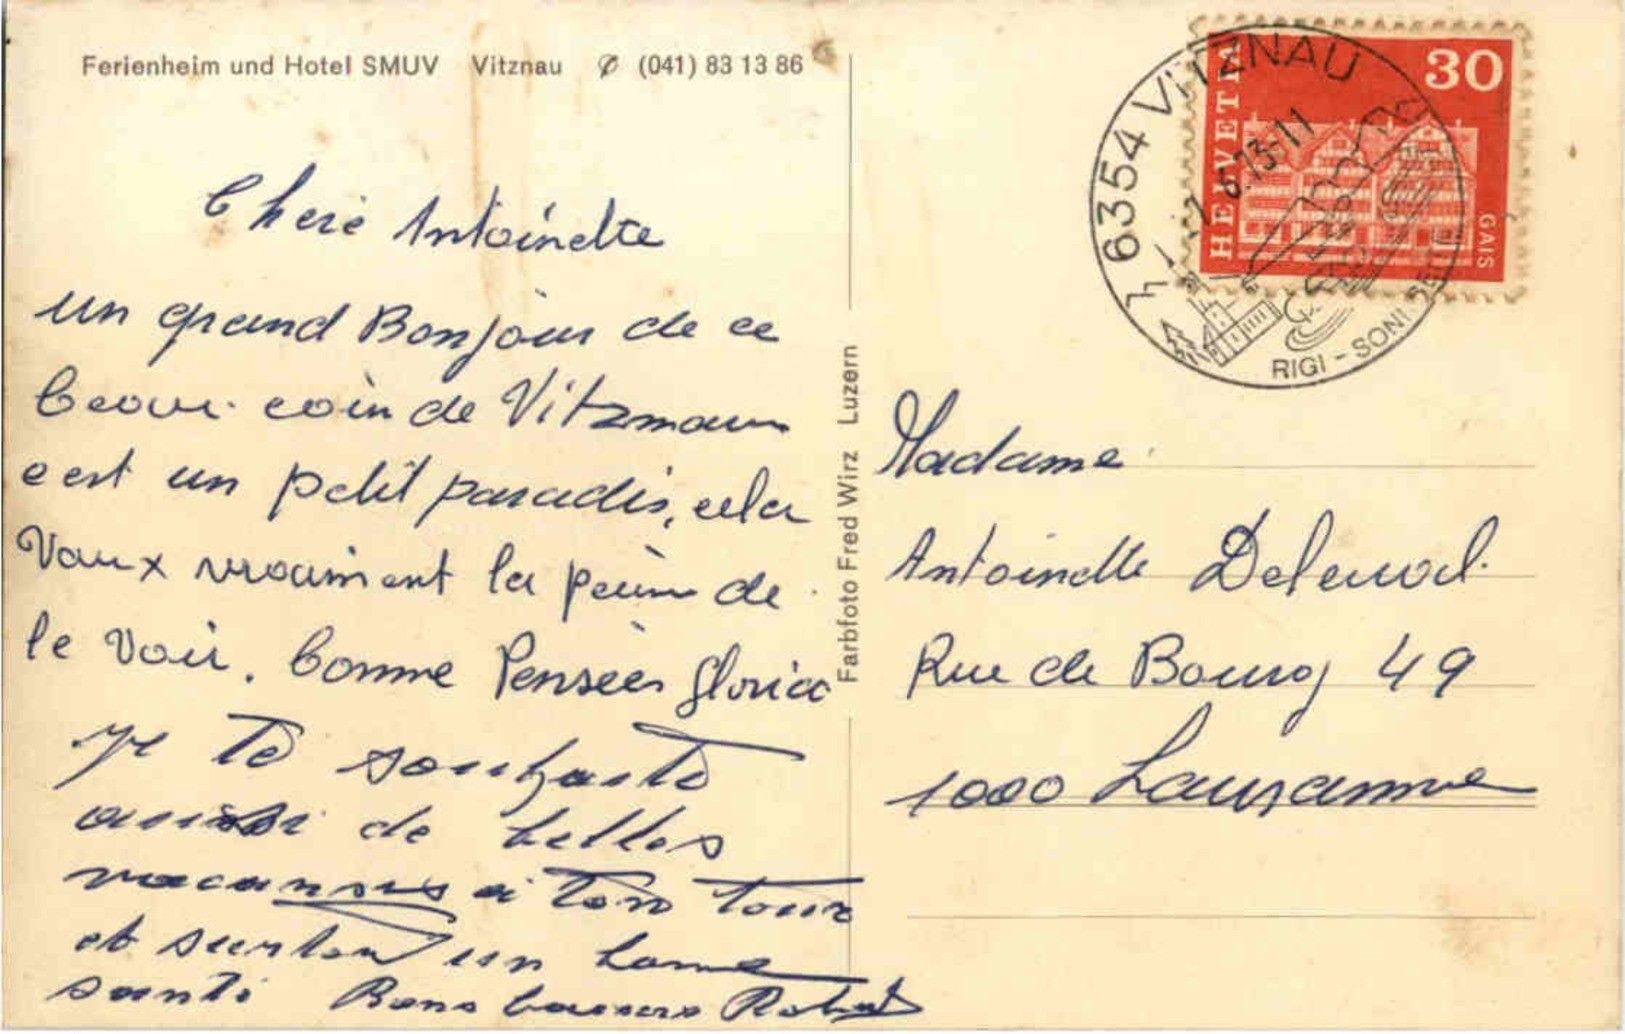 Ferienheim und Hotel SMUV Vitznau (041) 83 13 86
Cherè Antoinette
un grand Bonjour de ce
beaux coin de Vitzmaun
c'est un petit paradis, cela
Vaux vraiment la peine de
le voir. bonne Pensées Gloria
je te souhaite
aussi de belles
vacanses a ton tour
et surtou un bonne
santé Bons baisers Robert
Farbfoto Fred Wirz Luzern
6354 VITZNAU
6.73-11
RIGI - SONN
HELVETIA
30
GAIS
Madame
Antoinette
Rue de Bourg 49
1000 Lausanne